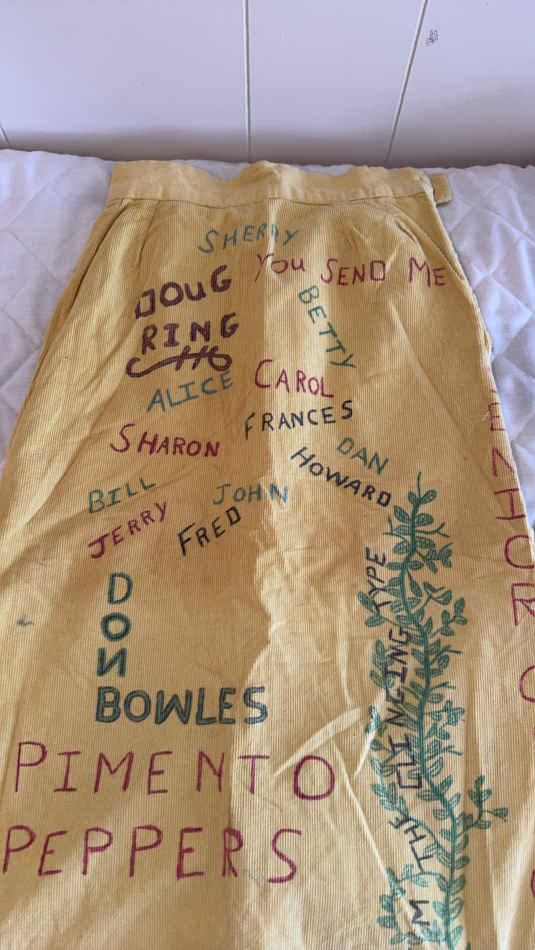 SHERRY
YOU SEND ME
DOUG
RING
BETTY
ALICE
CAROL
FRANCES
SHARON
DAN
HOWARD
BILL
JOHN
JERRY
FRED
DON
BOWLES
PIMENTO
PEPPERS
M THE CLINGING TYPE
ENIOR